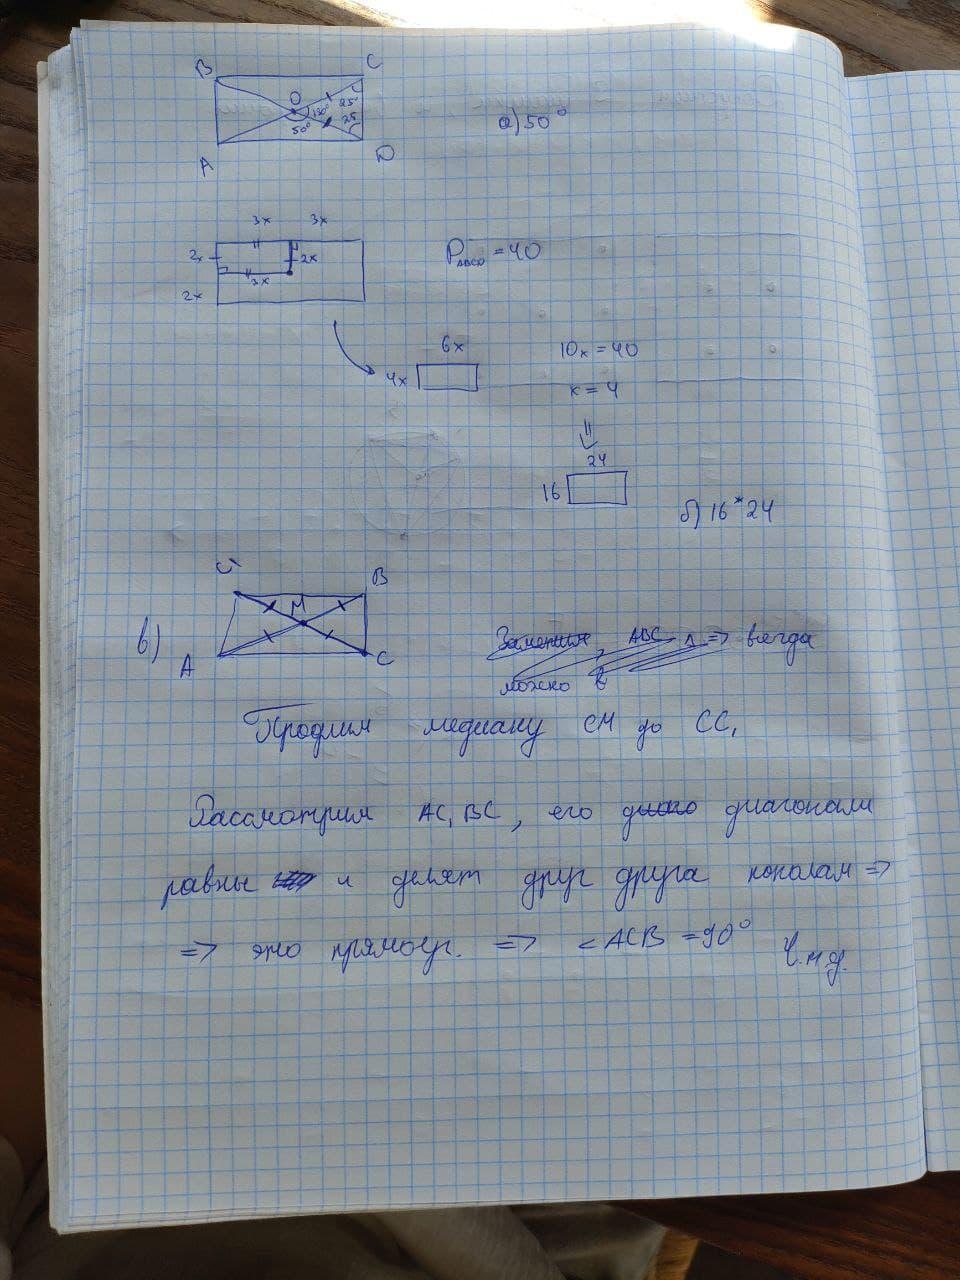 B
C
O
130°
25°
50°
25
A
D
а) 50°
3x 3x
2x
2x
3x
2x
P ABCD = 40
6x
4x
10x = 40
x = 4
⇓
24
16
б) 16*24
C₁
B
M
в)
A
C
Заметим, ABC ⇒ всегда
можно
Продлим медиану CM до CC₁
Рассмотрим AC₁BC, его диагонали
равны и делят друг друга пополам ⇒
⇒ это прямоуг. ⇒ <ACB = 90°
Ч.т.д.